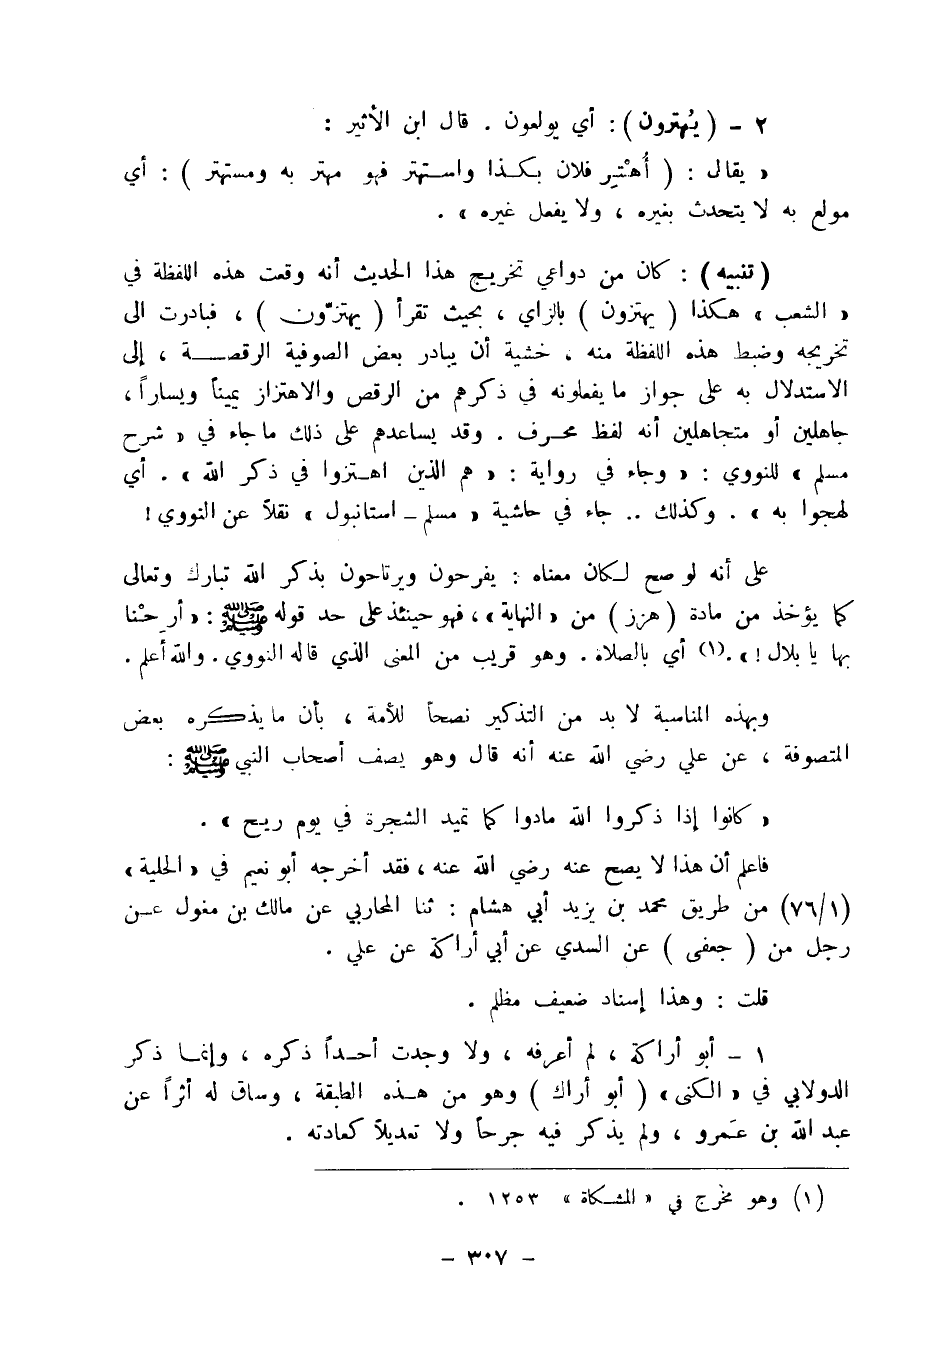 ٢ - ( يُهترون ) : أي يولعون . قال ابن الأثير :
« يقال : ( أُهْتِر فلان بكذا واستهتر فهو مهتر به ومستهتر ) : أي
مولع به لا يتحدث بغيره ، ولا يفعل غيره » .
( تنبيه ) : كان من دواعي تخريج هذا الحديث أنه وقعت هذه اللفظة في
« الشعب » هكذا ( يهتزون ) بالزاي ، بحيث تقرأ ( يهتزّون ) ، فبادرت الى
تخريجه وضبط هذه اللفظة منه ، خشية أن يبادر بعض الصوفية الرقصة ، إلى
الاستدلال به على جواز ما يفعلونه في ذكرهم من الرقص والاهتزاز يميناً ويساراً ،
جاهلين أو متجاهلين أنه لفظ محرف . وقد يساعدهم على ذلك ما جاء في « شرح
مسلم » للنووي : « وجاء في رواية : « هم الذين اهتزوا في ذكر الله » . أي
لهجوا به » . وكذلك .. جاء في حاشية « مسلم - استانبول » نقلاً عن النووي !
على أنه لو صح لكان معناه : يفرحون ويرتاحون بذكر الله تبارك وتعالى
كما يؤخذ من مادة ( هزز ) من « النهاية » ، فهو حينئذ على حد قوله ﷺ : « أرحْنا
بها يا بلال ! » .(١) أي بالصلاة . وهو قريب من المعنى الذي قاله النووي . والله أعلم .
وبهذه المناسبة لا بد من التذكير نصحاً للأمة ، بأن ما يذكره بعض
المتصوفة ، عن علي رضي الله عنه أنه قال وهو يصف أصحاب النبي ﷺ :
« كانوا إذا ذكروا الله مادوا كما تميد الشجرة في يوم ريح » .
فاعلم أن هذا لا يصح عنه رضي الله عنه ، فقد أخرجه أبو نعيم في « الحلية »
(٧٦/١) من طريق محمد بن يزيد أبي هشام : ثنا المحاربي عن مالك بن مغول عن
رجل من ( جعفى ) عن السدي عن أبي أراكة عن علي .
قلت : وهذا إسناد ضعيف مظلم .
١ - أبو أراكة ، لم أعرفه ، ولا وجدت أحداً ذكره ، وإنما ذكر
الدولابي في « الكنى » ( أبو أراك ) وهو من هذه الطبقة ، وساق له أثراً عن
عبد الله بن عَمرو ، ولم يذكر فيه جرحاً ولا تعديلاً كعادته .
(١) وهو مخرج في « المشكاة » ١٢٥٣ .
- ٣٠٧ -